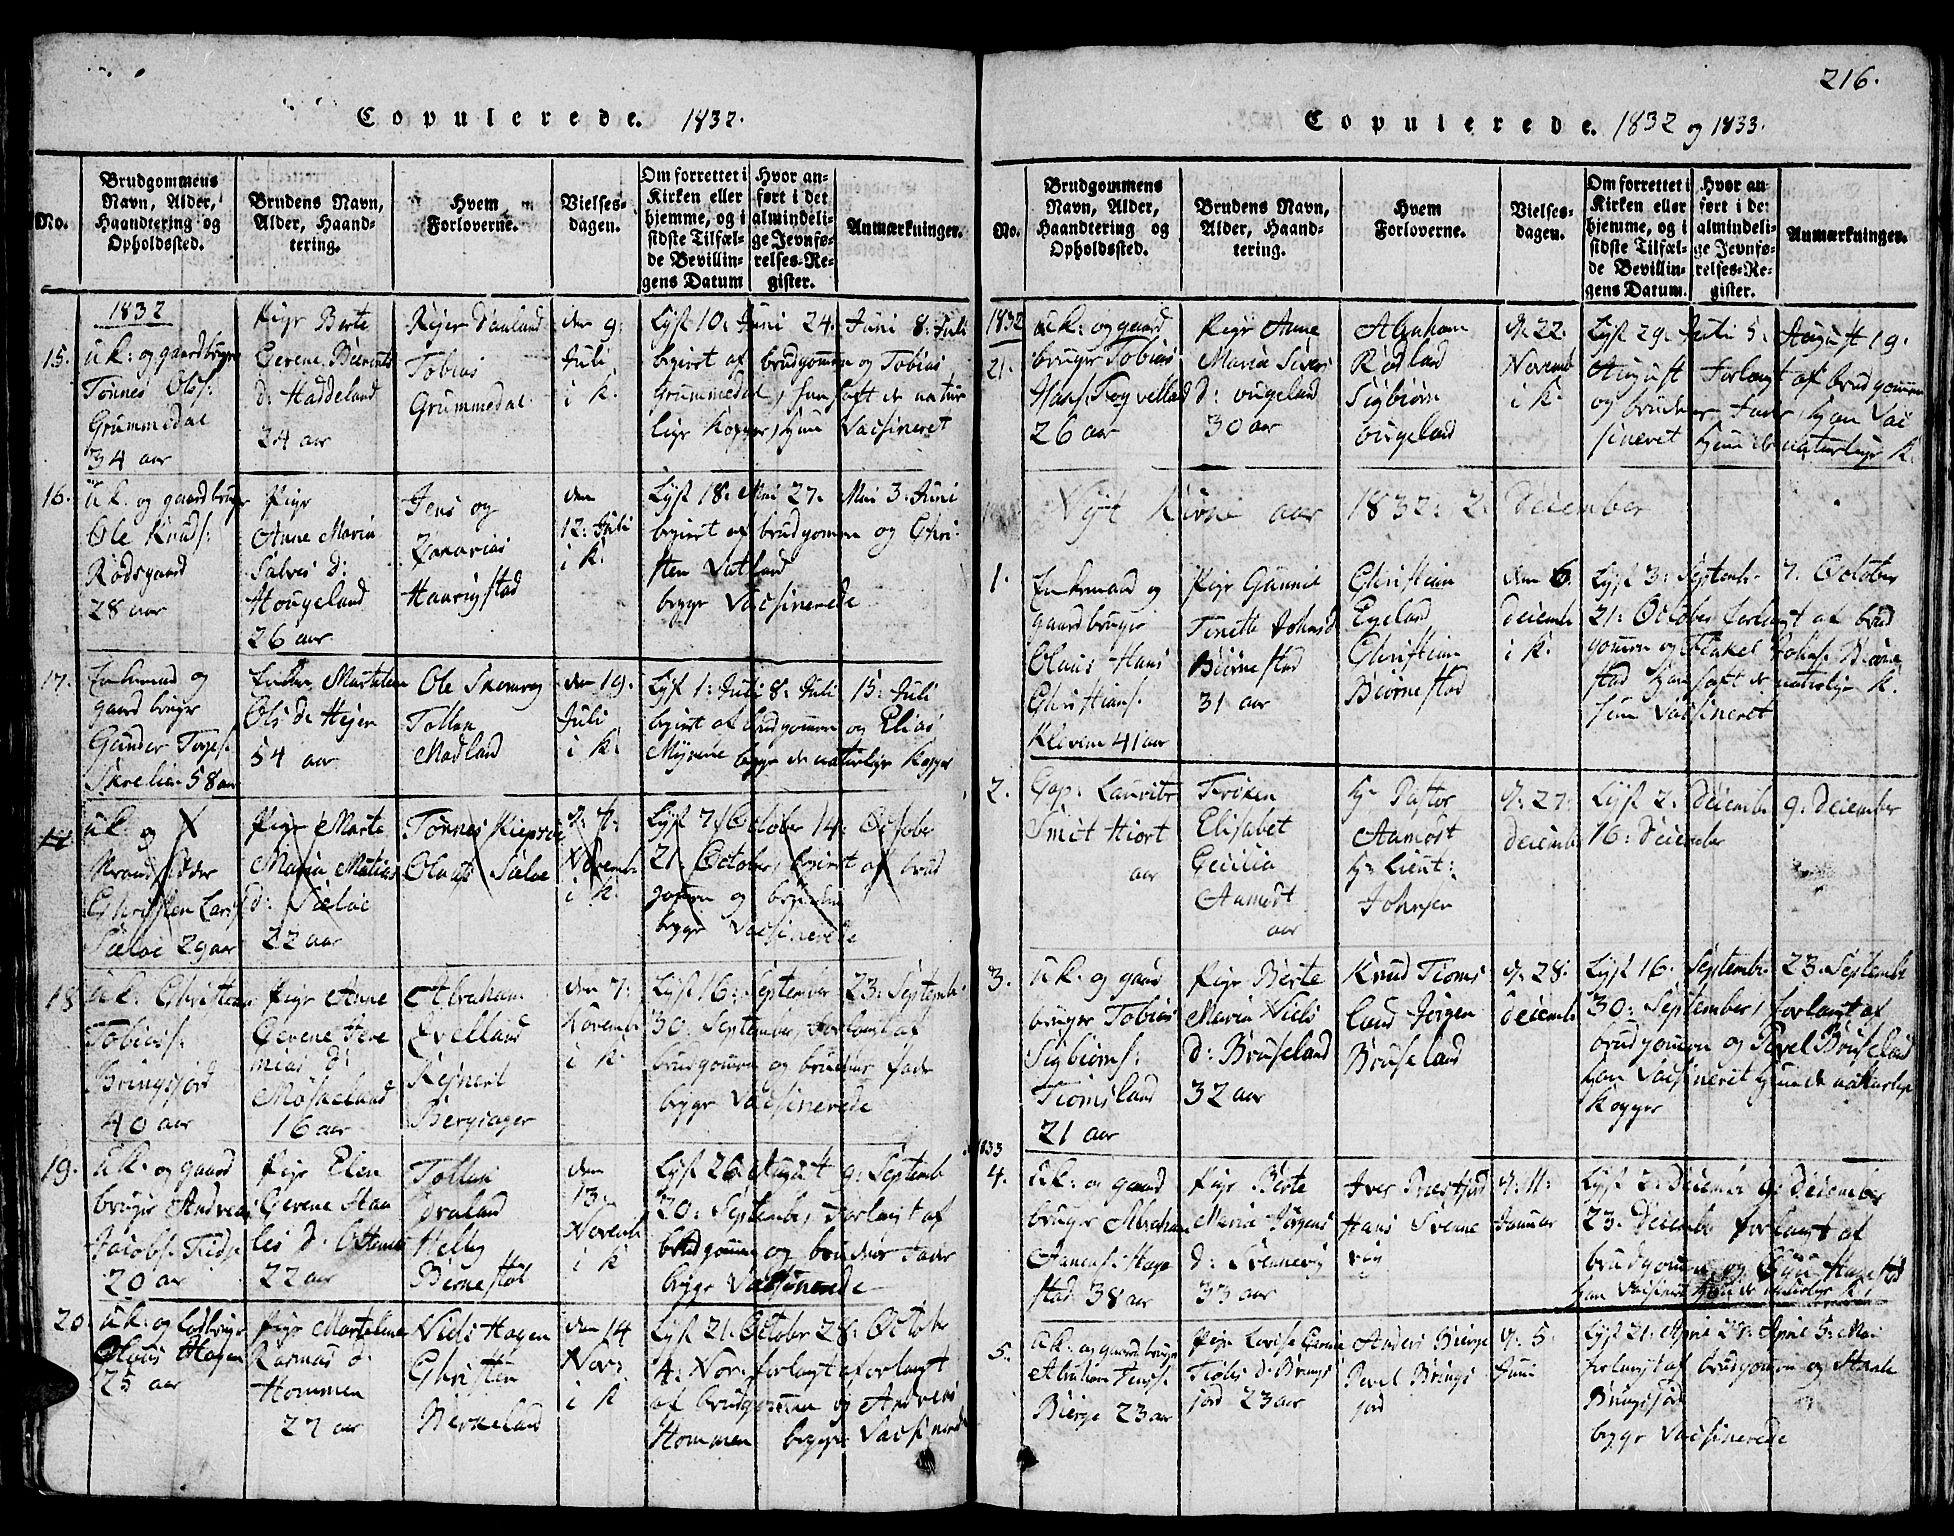 Copulerede. 1832.
No.
Brudgommens
Navn, Alder,
Haandtering og
Opholdssted.
Brudens Navn,
Alder, Haand-
tering.
Hvem
Forloverne.
Vielses-
dagen.
Om forrettet i
Kirken eller
hjemme, og i
sidste Tilfæl-
de Bevillin-
gens Datum
Hvor an-
ført i det
almindeli-
ge Jevnfø-
relses-Re-
gister.
Anmærkninger.
1832
15.
uk: og gaardbruger
Tønnes Ols:
Grummedal
34 aar
Pige Berte
Serene
d: Haddeland
24 aar
Rejer Dauland
Tobias
Grummedal
den 9:
Juli
i k.
Lyst 10: Juni 24. Juni 8: Juli
begiret af brudgommen og Tobias
Grummedal, han haft de natur
lige kopper, hun Vacsineret
16.
uk: og gaardbruger
Ole Knuds:
Rødsgaard
28 aar
Pige
Anne Maria
Salves d:
Hougeland
26 aar
Jens og
Zakarias
Haarigstad
den
12: Juli
i k.
Lyst 18: Mai 27. Mai 3: Juni
begiret af brudgommen og Chri-
sten Vatland
begge Vacsinerede
17.
Enkemand og
gaardbruger
Gunder Torges:
Skrelien 58 aar
Enken Martelene
Ols d: Hejer
54 aar
Ole
Tollen
Madland
den 19.
Juli
i k.
Lyst 1: Juli 8: Juli 15: Juli
begiret af brudgommen og Elias
Myrene begge de naturlige kopper
uk: og
Christen Lars
Sæløe 29 aar
Pige Marte
Maria Matias
d: Sæløe
22 aar
Tønnes
Olaus Sæløe
November
i k.
Lyst 7: October 14: October
21: October, begiret af brud
gommen og
begge Vacsinerede
18
uk: Christian
Tobias:
Bringsjord
40 aar
Pige Anne
Serene Jere
mias d:
Moskeland
16 aar
Abraham
Evelland
Rejnert
Bergsager
den 7:
November
i k:
Lyst 16: September 23: Septemb.
30. September, forlangt af
brudgommen og brudens fader
begge Vacsinerede
19.
uk: og gaard
bruger Andreas
Jacobs:
20 aar
Pige Elen
Serene Staa
les d:
22 aar
Tollen
Helleg
Birnestad
den
13.
Novemb
i k
Lyst 26 August 9: Septemb
20: September, Forlangt af
brudgommen og brudens Fader
begge Vacsinerede
20.
uk: og
Olaus Hagen
25 aar
Pige Martelene
Rasmus d:
Hommen
27 aar
Niels Hagen
Christen
Berkeland
den 14
Nov:
i k
Lyst 21: October 28: October
4: Nov: forlangt forlangt
af brudgommen og Andreas
Hommen begge Vacsinerede
216.
Copulerede. 1832 og 1833.
No.
Brudgommens
Navn, Alder,
Haandtering og
Opholdssted.
Brudens Navn,
Alder, Haand-
tering.
Hvem
Forloverne.
Vielses-
dagen.
Om forrettet i
Kirken eller
hjemme, og i
sidste Tilfæl-
de Bevillin-
gens Datum.
Hvor an-
ført i det
almindeli-
ge Jevnfø-
relses-Re-
gister.
Anmærkninger.
1832
21.
uk: og gaard
bruger Tobias
Hans: Fogvelland
26 aar
Pige Anne
Maria Siverts
d: ougeland
30 aar
Abraham
Rødland
Sigbiørn
ougeland
d. 22.
Novemb
i k.
Lyst 29: Juli 5: August 19.
August Forlangt af brudgommen
og brudens Fader, han Vac
sineret hun de naturlige k.
Nyt Kirke aar 1832: 2. december
1.
Enkemand og
gaardbruger
Olaus Hans
Christians:
Klevene 41 aar
Pige Gunnil
Tenette Johns d
Beirnestad
31 aar
Christian
Egeland
Christian
Beirnestad
den 6.
decemb
i k.
Lyst 3: Septemb. 7: October
21: October forlangt af brud
gommen og Johns: Birne
stad han haft de naturlige k.
hun Vacsineret
2.
Cap: Lauritz
Smit Hiort
aar
Frøken
Elisabet
Cecilia
Aamodt
aar
Hr Pastor
Aamodt
Hr Lieut:
Johnsen
d. 27.
december
Lyst 2: decemb 9: december
16: december
3.
uk. og gaard
bruger Tobias
Sigbiørns:
Tiomsland
21 aar
Pige Berte
Maria Niels
d: Bruseland
32 aar
Knud Tioms
land Jørgen
Bruseland
d. 28.
decemb
Lyst 16. Septemb. 23. Septembr
30: September, forlangt af
brudgommen og Pevel Bruseland
han Vacsineret hun de naturlige
kopper
1833
4.
uk: og gaard
bruger Abraham
Hage
stad 38 aar
Pige Berte
Maria Jørgens
d: Svennevig
33 aar
Iver Prestjord
Hans Svenne
vig
d. 11:
Januar
Lyst 2: Decemb 9: December
23: Decemb forlangt af
brudgommen og Hagestad
han Vacsineret hun de naturlige k,
5.
uk: og gaardbruger
Abraham Jens:
Bierge 23 aar
Pige Lovise Serene
d: Brings
jord 23 aar
Anders Bierge
Pevel Brings
jord
d. 5.
Juni
Lyst 21: April 28: April 5: Mai
forlangt af brudgommen og Staale
Bringsjord
begge Vacsinerede